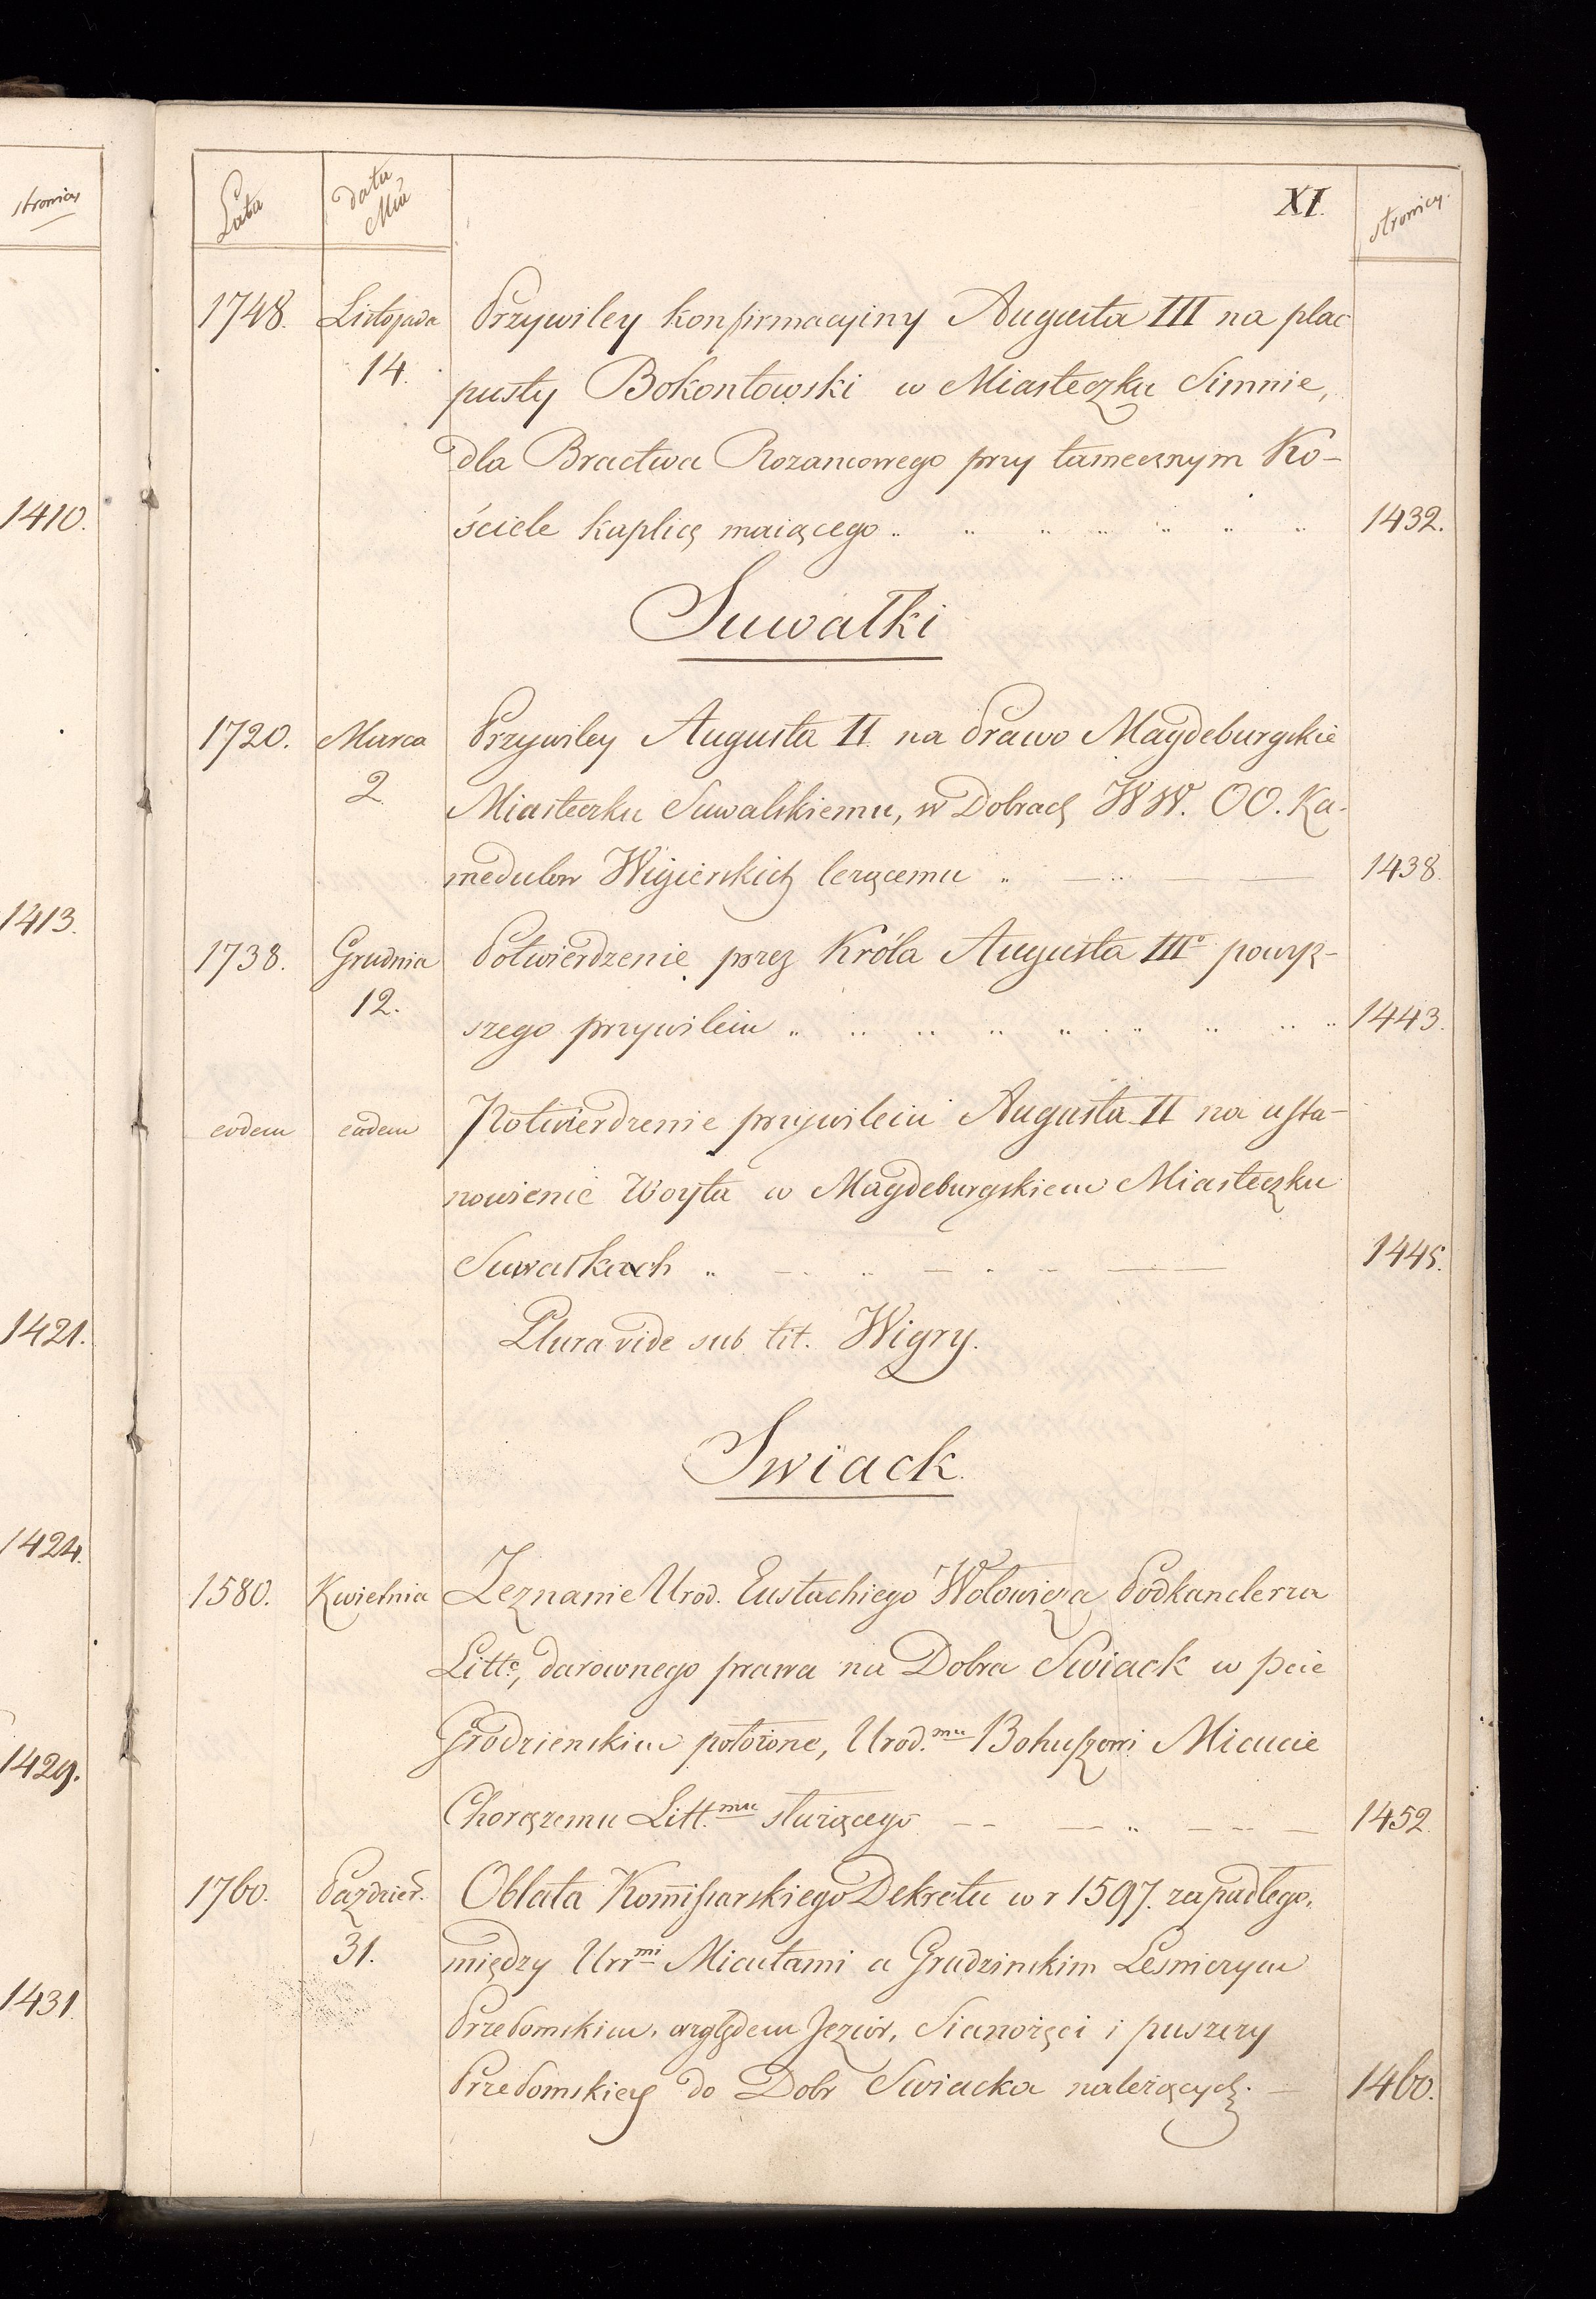 stronica
1410.
1413.
1421.
1424.
1429.
1431.
Lata
data
Mca
XI.
stronicy.
1748. Listopada Przywiley konfirmacyiny Augusta III na plac
14. pusty Bokontowski w Miasteczku Simnie,
dla Bractwa Rozancowego przy tamecznym Ko-
ściele kaplicę maiącego 1432.
Suwałki
1720. Marca Przywiley Augusta II. na Prawo Magdeburgskie
2 Miasteczku Suwalskiemu, w Dobrach WW. OO. Ka-
medulow Wigierskich lezącemu 1438.
1738. Grudnia Potwierdzenie przez Króla Augusta IIIo powyż-
12. szego przywileiu 1443.
eodem eadem Potwierdzenie przywileiu Augusta II na usta-
nowienie Woyta w Magdeburgskiem Miasteczku
Suwałkach 1445.
Plura vide sub tit. Wigry.
Swiack.
1580. Kwietnia Zeznanie Urod. Eustachiego Wołowicza Podkanclerza
Litto, darownego prawa na Dobra Swiack w pcie
Grodzienskim położone, Urod.mu Bohuszowi Micucie
Chorążemu Litt.mu służącego 1452.
1760. Pazdzier. Oblata Kommissarskiego Dekretu w r 1597. zapadłego,
31. między Urrmi Micutami a Grudzinskim Lesniczym
Przełomskim, względem Jezior, Sianożęci i puszczy
Przełomskiey do Dobr Swiacka należących. 1460.